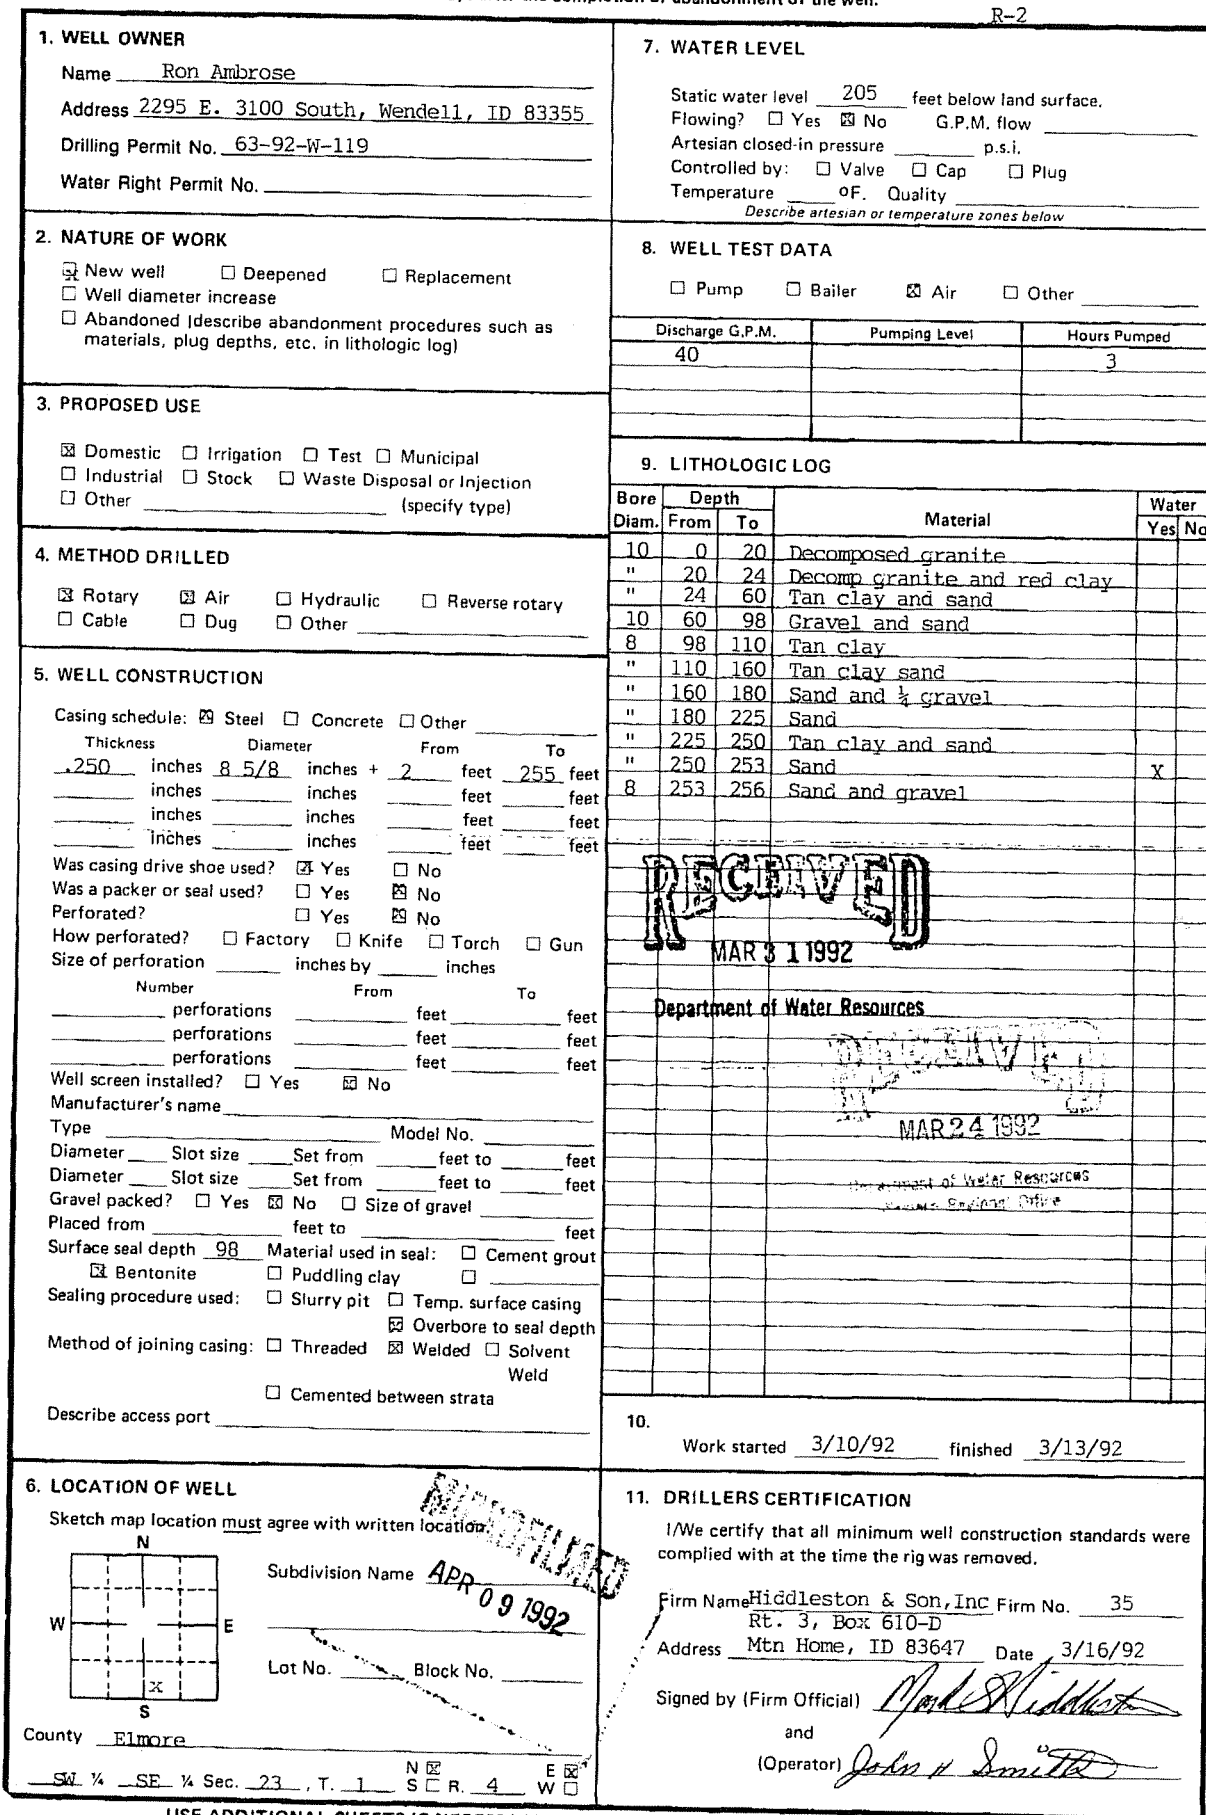 R-2
1. WELL OWNER
Name Ron Ambrose
Address 2295 E. 3100 South, Wendell, ID 83355
Drilling Permit No. 63-92-W-119
Water Right Permit No.
2. NATURE OF WORK
☒ New well ☐ Deepened ☐ Replacement
☐ Well diameter increase
☐ Abandoned (describe abandonment procedures such as
materials, plug depths, etc. in lithologic log)
3. PROPOSED USE
☒ Domestic ☐ Irrigation ☐ Test ☐ Municipal
☐ Industrial ☐ Stock ☐ Waste Disposal or Injection
☐ Other (specify type)
4. METHOD DRILLED
☒ Rotary ☒ Air ☐ Hydraulic ☐ Reverse rotary
☐ Cable ☐ Dug ☐ Other
5. WELL CONSTRUCTION
Casing schedule: ☒ Steel ☐ Concrete ☐ Other
Thickness Diameter From To
.250 inches 8 5/8 inches + 2 feet 255 feet
inches inches feet feet
inches inches feet feet
inches inches feet feet
Was casing drive shoe used? ☒ Yes ☐ No
Was a packer or seal used? ☐ Yes ☒ No
Perforated? ☐ Yes ☒ No
How perforated? ☐ Factory ☐ Knife ☐ Torch ☐ Gun
Size of perforation inches by inches
Number From To
perforations feet feet
perforations feet feet
perforations feet feet
Well screen installed? ☐ Yes ☒ No
Manufacturer's name
Type Model No.
Diameter Slot size Set from feet to feet
Diameter Slot size Set from feet to feet
Gravel packed? ☐ Yes ☒ No ☐ Size of gravel
Placed from feet to feet
Surface seal depth 98 Material used in seal: ☐ Cement grout
☒ Bentonite ☐ Puddling clay ☐
Sealing procedure used: ☐ Slurry pit ☐ Temp. surface casing
☒ Overbore to seal depth
Method of joining casing: ☐ Threaded ☒ Welded ☐ Solvent
Weld
☐ Cemented between strata
Describe access port
6. LOCATION OF WELL
Sketch map location must agree with written location.
MICROFILMED
APR 09 1992
N
W E
X
S
Subdivision Name
Lot No. Block No.
County Elmore
SW ¼ SE ¼ Sec. 23, T. 1 N ☒ S ☐ R. 4 E ☒ W ☐
7. WATER LEVEL
Static water level 205 feet below land surface.
Flowing? ☐ Yes ☒ No G.P.M. flow
Artesian closed-in pressure p.s.i.
Controlled by: ☐ Valve ☐ Cap ☐ Plug
Temperature ºF. Quality
Describe artesian or temperature zones below
8. WELL TEST DATA
☐ Pump ☐ Bailer ☒ Air ☐ Other
Discharge G.P.M. Pumping Level Hours Pumped
40 3
9. LITHOLOGIC LOG
Bore Depth Water
Diam. From To Material Yes No
10 0 20 Decomposed granite
" 20 24 Decomp granite and red clay
" 24 60 Tan clay and sand
10 60 98 Gravel and sand
8 98 110 Tan clay
" 110 160 Tan clay sand
" 160 180 Sand and ¼ gravel
" 180 225 Sand
" 225 250 Tan clay and sand
" 250 253 Sand X
8 253 256 Sand and gravel
RECEIVED
MAR 31 1992
Department of Water Resources
RECEIVED
MAR 24 1992
Department of Water Resources
Regional Office
10.
Work started 3/10/92 finished 3/13/92
11. DRILLERS CERTIFICATION
I/We certify that all minimum well construction standards were
complied with at the time the rig was removed.
Firm Name Hiddleston & Son, Inc Firm No. 35
Rt. 3, Box 610-D
Address Mtn Home, ID 83647 Date 3/16/92
Signed by (Firm Official) Mark S Hiddleston
and
(Operator) John H Smith